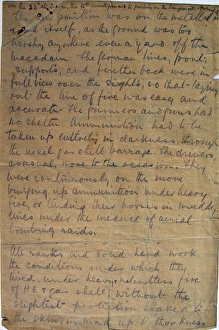 the position was on the metalled
road itself, as the ground was too
anywhere even a yard off the
macadam. The German lines, front,
supports, and further back were in
full view over the sights, so that laying
out the line of fire was easy and
accurate. The gunners and guns had
no shelter. Ammunition had to be
taken up entirely in darkness, through
the usual gas shell barrage. The drivers
as usual, rose to the occasion. They
were continuously on the move
bringing up ammunition under heavy
fire, or finding their horses in muddy
lines under the menace of aerial
bombing raids.
All ranks and hard work
the conditions under which they
lived, under heavy relentless fire
of H.E & gas shell, without the
slightest protection, soaked to
the skin, in mud up to their knees